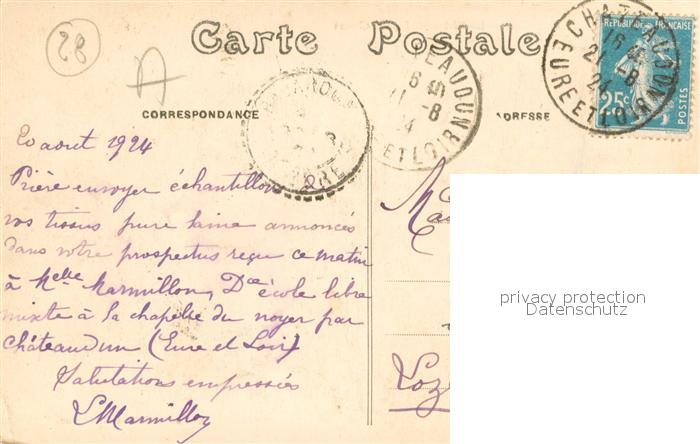 28
Carte Postale
CORRESPONDANCE
ADRESSE
REPUBLIQUE FRANÇAISE
25c
POSTES
CHATEAUDUN
16
21-8
24
EURE ET LOIR
EAUDUN
6
-8
24
ET LOIR
20 aout 1924
Prière envoyer échantillon
vos tissus pure laine annoncés
dans votre prospectus reçu ce matin
à Melle Marmillon, Dce école libre
mixte à la chapelle du noyer par
Châteaudun (Eure et Loir)
Salutations empressées
LMarmillon
Loz
privacy protection
Datenschutz